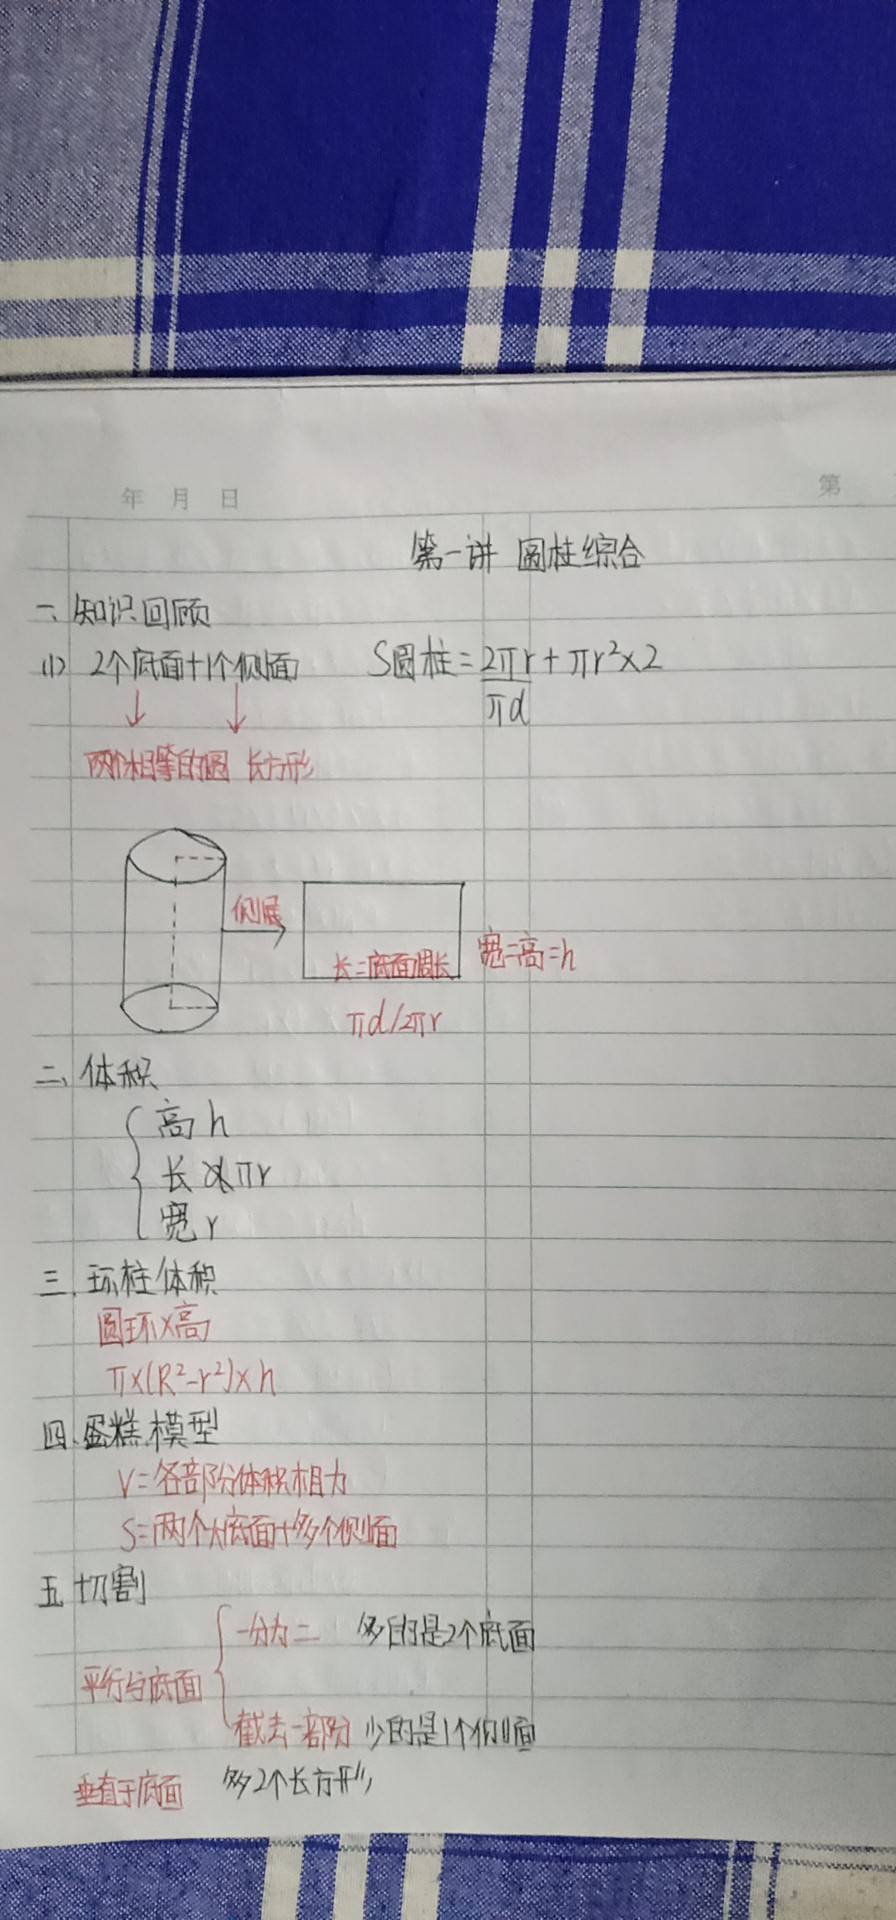 年 月 日
第
第一讲 圆柱综合
一、知识回顾
(1) 2个底面+1个侧面 S圆柱=2πr+πr²×2
πd
↓ ↓
两个相等的圆 长方形
侧展
长=底面周长 宽=高=h
πd/2πr
二、体积
高h
长πr
宽r
三、环柱体积
圆环×高
π×(R²-r²)×h
四、蛋糕模型
V=各部分体积相加
S=两个大底面+多个侧面
五、切割
一分为二 多的是2个底面
平行与底面
截去一部分 少的是1个侧面
垂直于底面 多2个长方形